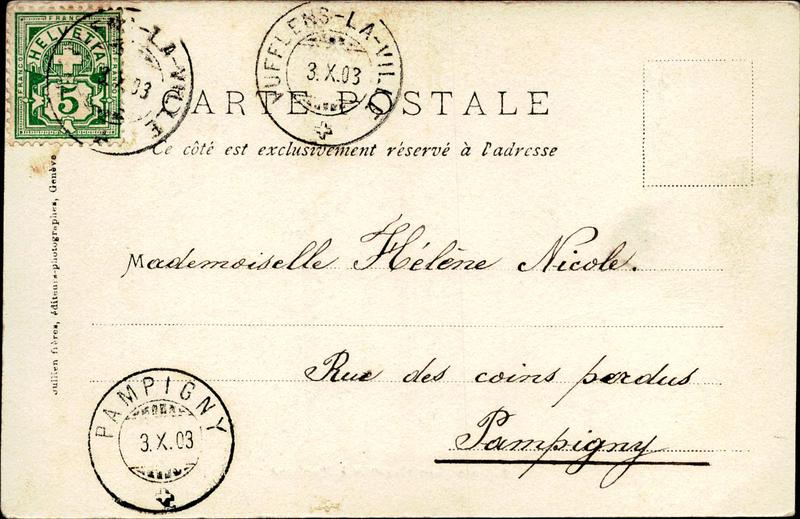 FRANCO
FRANCO
FRANCO
HELVETIA
5
VUFFLENS-LA-VILLE
3.X.03
CARTE POSTALE
Ce côté est exclusivement réservé à l'adresse
Jullien frères, éditeurs-photographes, Genève
Mademoiselle Hélène Nicole.
Rue des coins perdus
Pampigny
PAMPIGNY
3.X.03